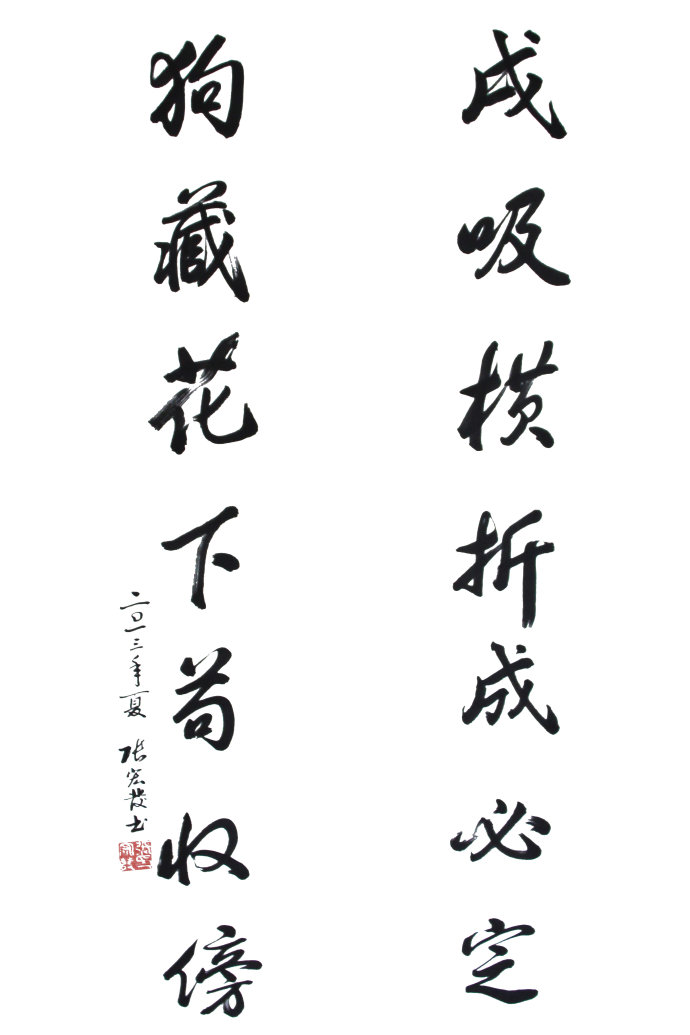 戌吸横折成必定
狗藏花下苟收傍
二〇一三年夏 张宏发书